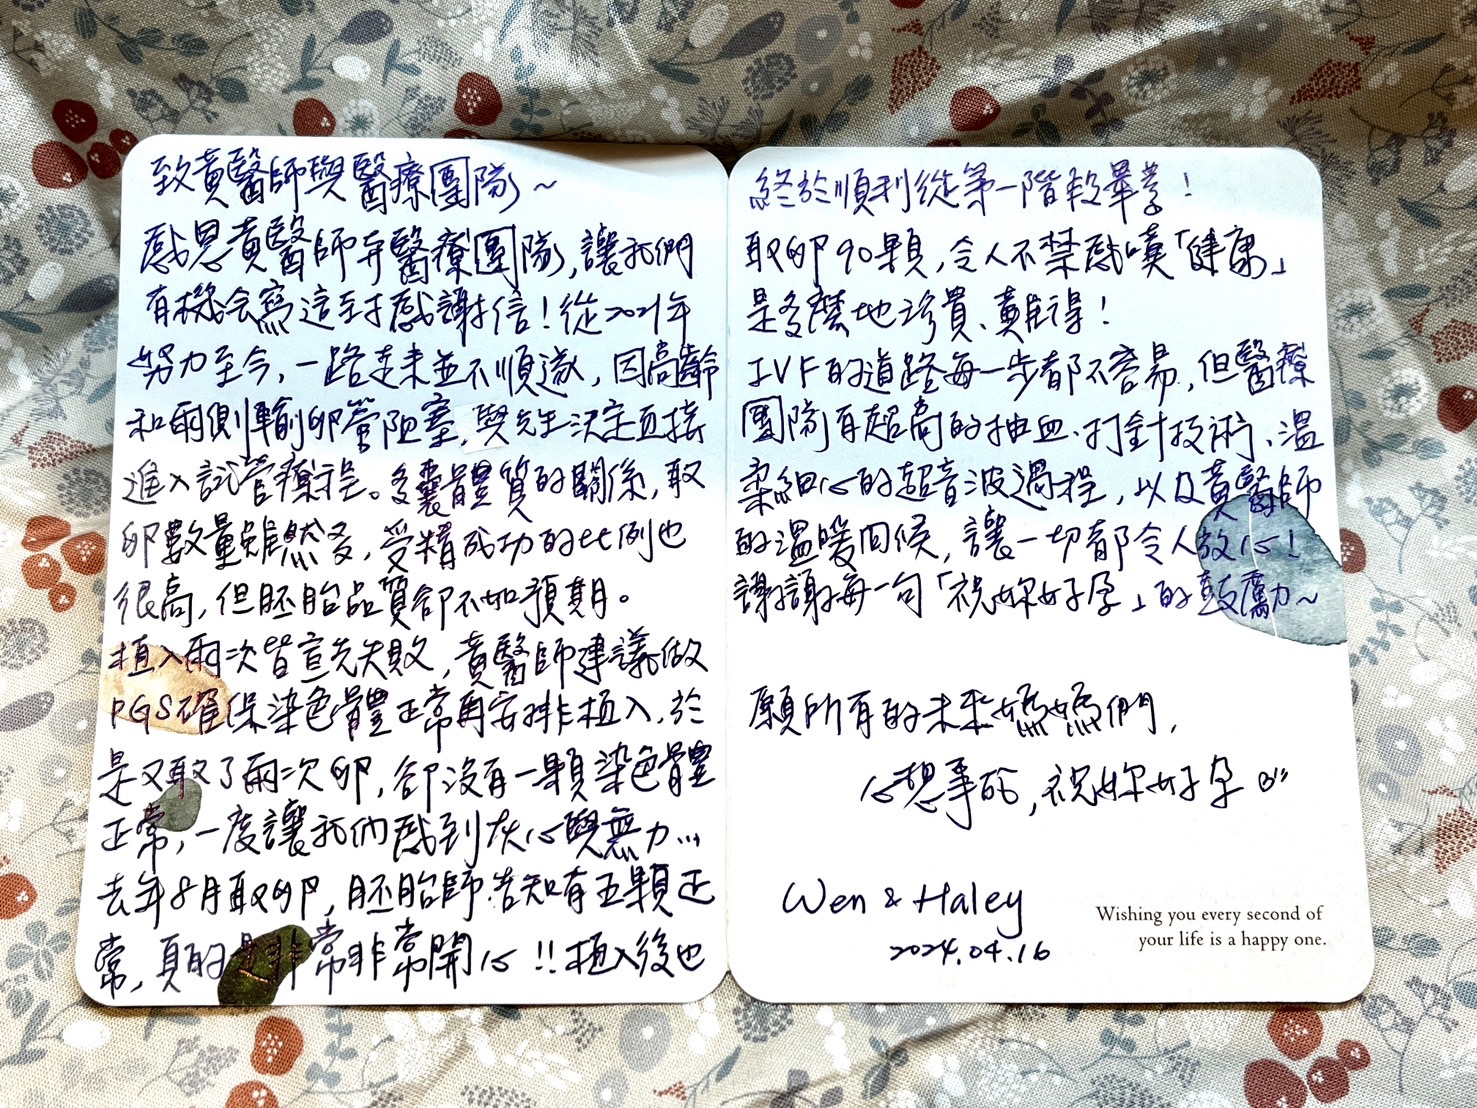 致黃醫師與醫療團隊~
感恩黃醫師与醫療團隊,讓我們
有機会寫這封感謝信!從2021年
努力至今,一路走來並不順遂,因高齡
和兩側輸卵管阻塞,與先生決定直接
進入試管療程。多囊體質的關係,取
卵數量雖然多,受精成功的比例也
很高,但胚胎品質卻不如預期。
植入兩次皆宣告失敗,黃醫師建議做
PGS確保染色體正常再安排植入,於
是又取了兩次卵,卻沒有一顆染色體
正常,一度讓我們感到灰心與無力...
去年8月取卵,胚胎師告知有五顆正
常,真的是非常非常開心!!植入後也
終於順利從第一階段畢業!
取卵90顆,令人不禁感嘆「健康」
是多麼地珍貴、難得!
IVF的道路每一步都不容易,但醫療
團隊有超高的抽血、打針技術、溫
柔細心的超音波過程,以及黃醫師
的溫暖問候,讓一切都令人放心!
謝謝每一句「祝妳好孕」的鼓勵~
願所有的未來媽媽們,
心想事成,祝妳好孕
Wen & Haley
2024.04.16
Wishing you every second of
your life is a happy one.